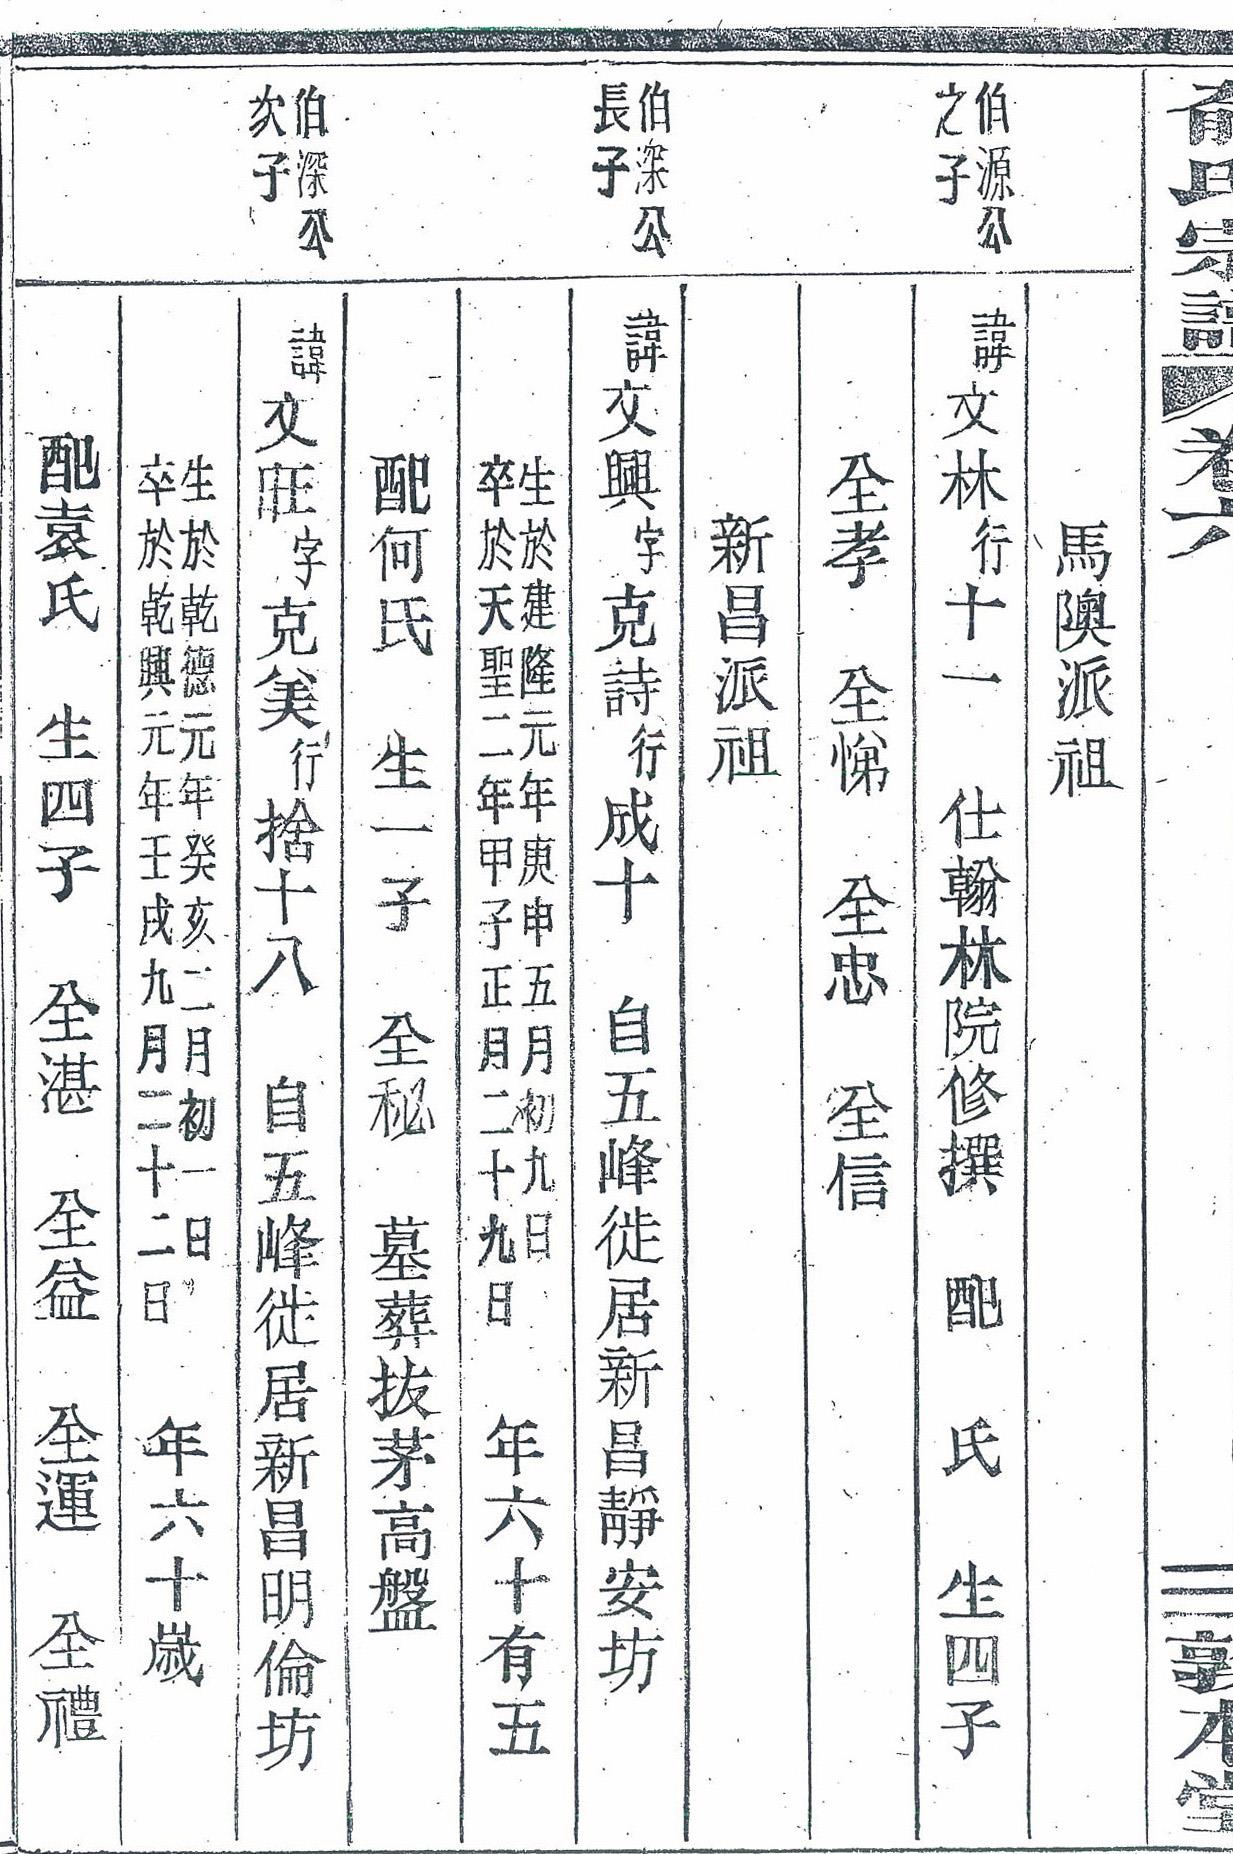 俞氏宗譜
卷六
三 敦本堂
馬隩派祖
伯源公
之子
諱文林行十一 仕翰林院修撰 配 氏 生四子
全孝 全悌 全忠 全信
新昌派祖
伯深公
長子
諱文興字克詩行成十 自五峰徙居新昌靜安坊
生於建隆元年庚申五月初九日
卒於天聖二年甲子正月二十九日 年六十有五
配何氏 生一子 全秘 墓葬拔茅高盤
伯深公
次子
諱文旺字克美行捨十八 自五峰徙居新昌明倫坊
生於乾德元年癸亥二月初一日
卒於乾興元年壬戌九月二十二日 年六十歲
配袁氏 生四子 全湛 全益 全運 全禮